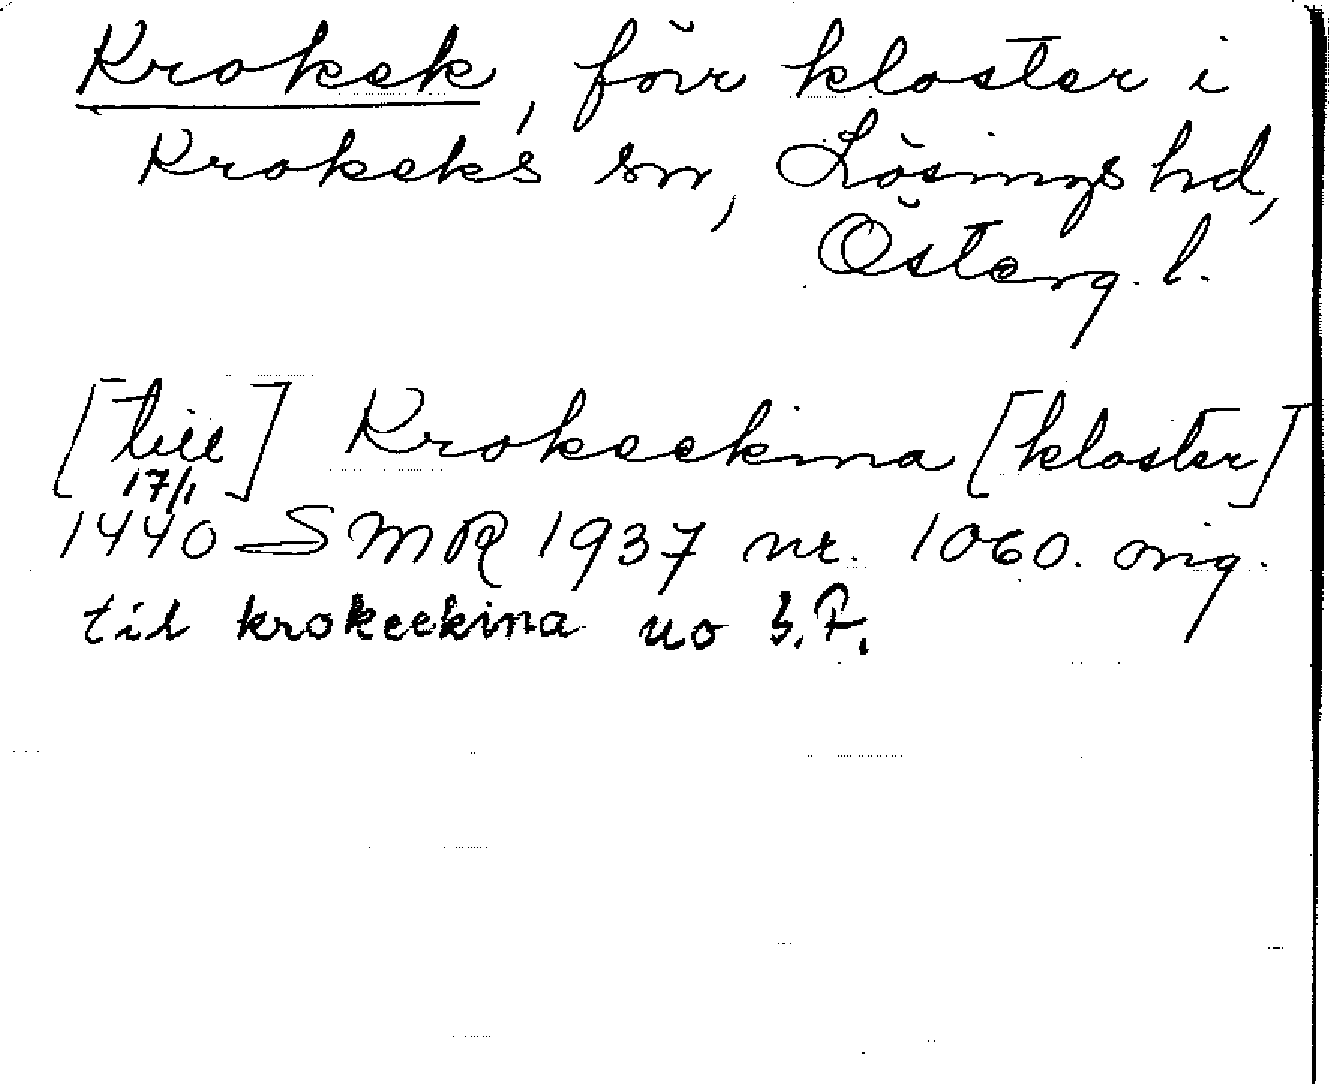 Krokek, förr kloster i
Krokeks sn, Lösings hd,
Österg. l.
[till] Krokeekina [kloster]
17/1
1440 SMR 1937 nr. 1060. orig.
til krokeekina uo S.F.